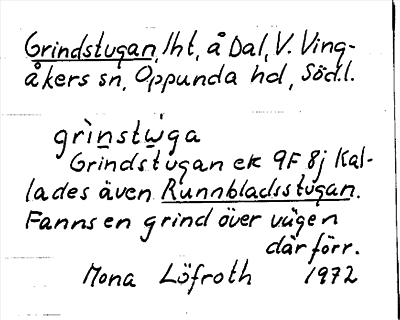 Grindstugan, lht, å Dal, V. Ving-
åkers sn, Oppunda hd, Södl.
grìnstùga
Grindstugan ek 9F 8j Kal-
lades även Runnbladsstugan.
Fanns en grind över vägen
där förr.
Mona Löfroth 1972